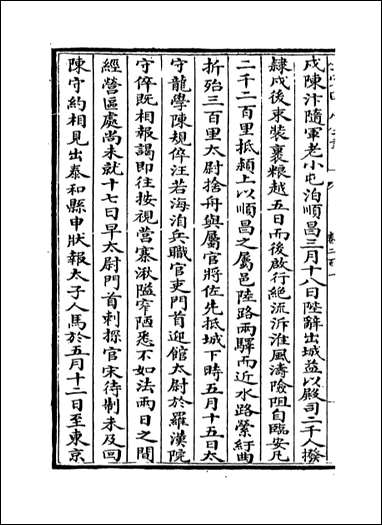 戍陳汴隨軍老小屯泊順昌三月十八日陛辭出城益以殿司二千人撥
隸戍後束裝裹粮越五日而後啟行絶流泝淮風濤險阻自臨安凡
二千二百里抵潁上以順昌之屬邑陸路兩驛而近水路縈紆曲
折殆三百里太尉捨舟與屬官將佐先抵城下時五月十五日太
守龍學陳規倅汪若海洎兵職官吏門首迎館太尉於羅漢院
守倅既相報謁即往按視營寨湫隘窄陋悉不如法兩日之間
經營區處尚未就十七日早太尉門首刺探官宋待制未及回
陳守約相見出泰和縣申狀報太子人馬於五月十二日至東京